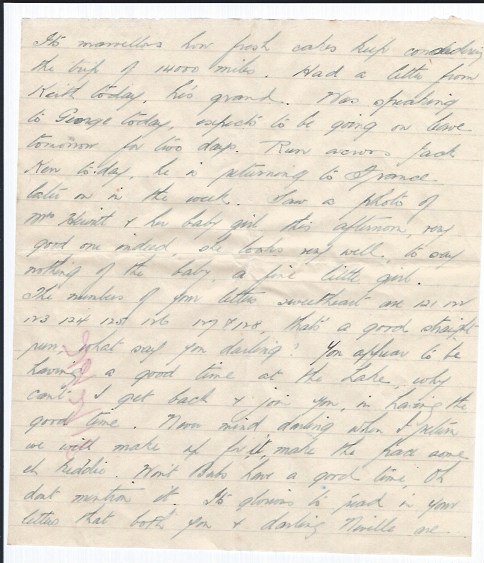 Its marvellous how fresh cakes keep considering
the trip of 14000 miles. Had a letter from
Keith today, he's grand. Was speaking
to George today, expects to be going on leave
tomorrow for two days. Run across Jack
Ken to-day, he is returning to France
later on in the week. Saw a photo of
Mrs & her baby girl this afternoon, very
good one indeed, she looks very well, to say
nothing of the baby, a fine little girl.
The numbers of your letters sweetheart are 121 122
123 124 125 126 127 & 128, that's a good straight
run, what say you darling? You appear to be
having a good time at the Lake, why
can't I get back & join you, in having the
good time. Never mind darling when I return
we will make up for it, make the pace some
eh Kiddie. Won't Babs have a good time, Oh
dont mention it. Its glorious to read in your
letters that both you & darling Neville are